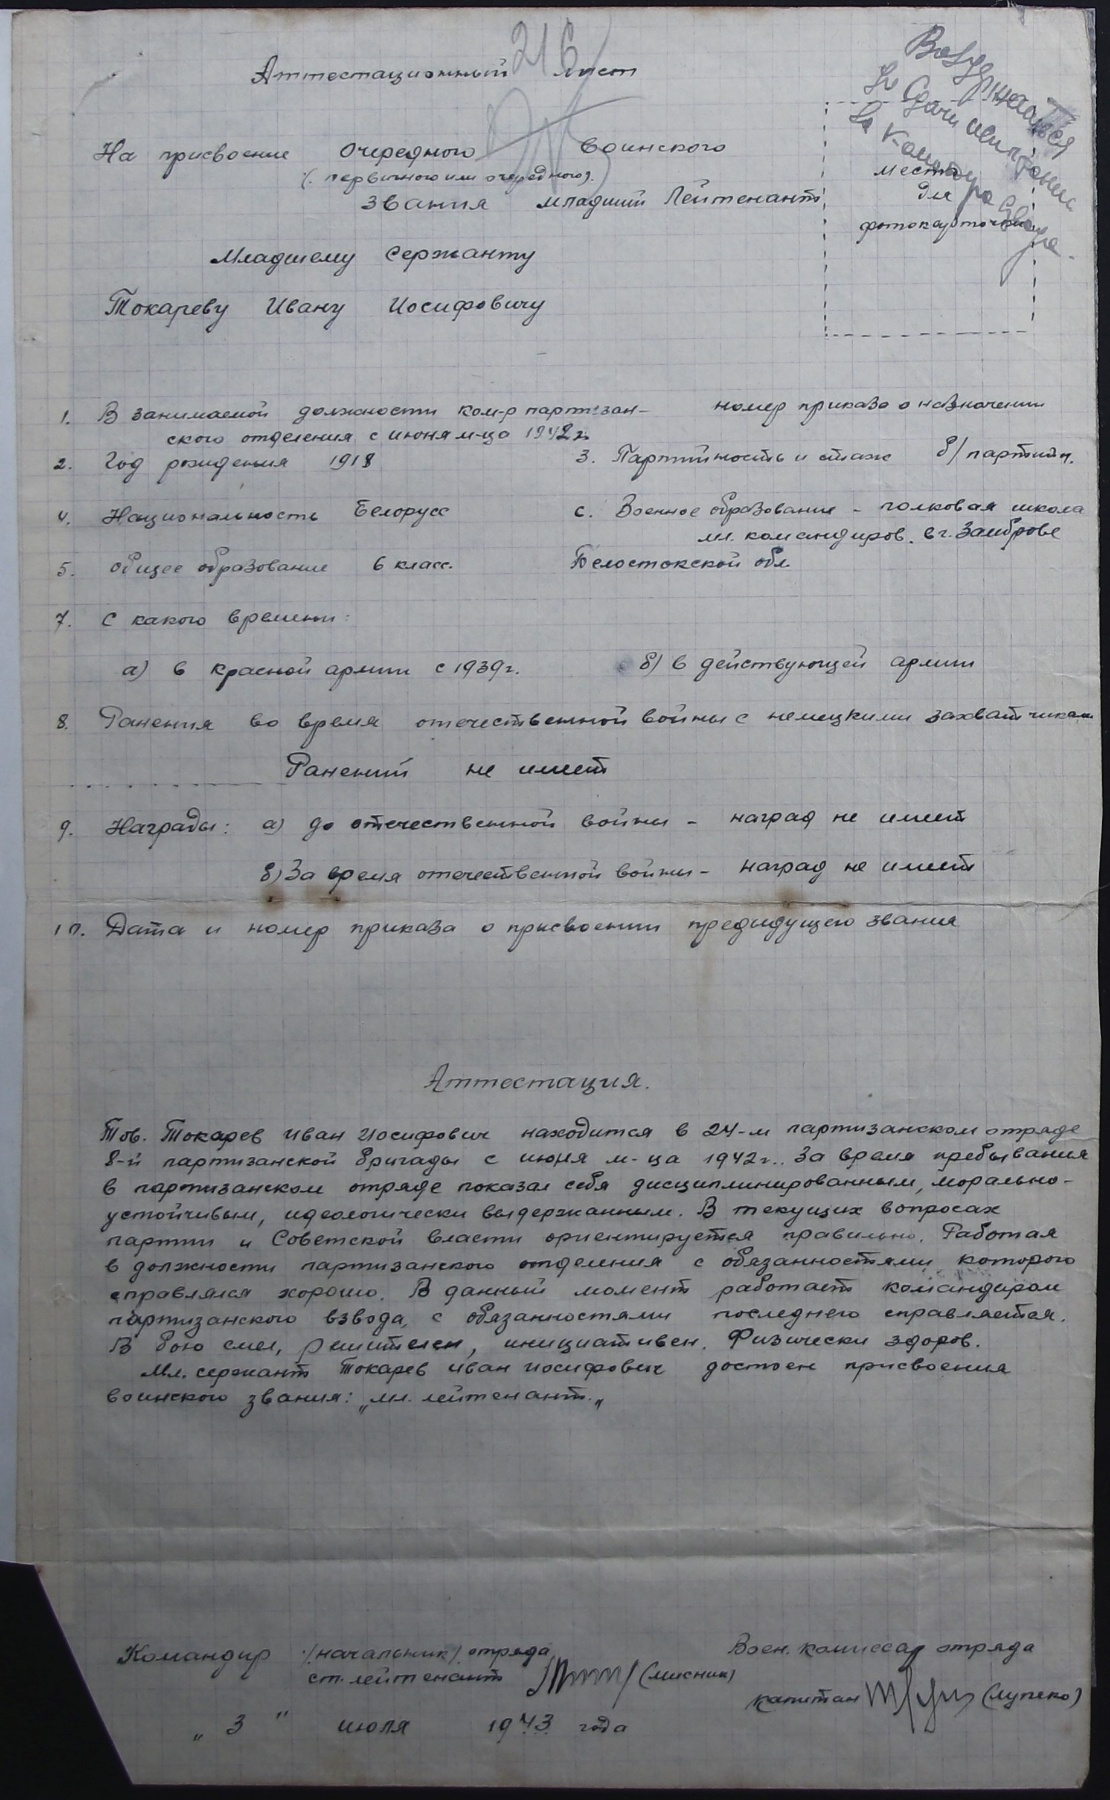 216
Аттестационный лист
Воздержаться
до сдачи испытания
на командира взвода.
На присвоение очередного воинского
/. первичного или очередного).
звания младший Лейтенант
место
для
фотокарточки
Младшему Сержанту
Токареву Ивану Иосифовичу
1. В занимаемой должности ком-р партизан- номер приказа о назначении
ского отделения с июня м-ца 1942 г.
2. Год рождения 1918 3. Партийность и стаж б/партийн.
4. Национальность Белорусс с. Военное образование - полковая школа
мл. командиров. в г. Замброве
5. общее образование 6 класс. Белостокской обл.
7. С какого времени:
а) в красной армии с 1939 г. б) в действующей армии
8. Ранения во время отечественной войны с немецкими захватчиками
Ранений не имеет
9. Награды: а) до отечественной войны - наград не имеет
б) За время отечественной войны - наград не имеет
10. Дата и номер приказа о присвоении предыдущего звания
Аттестация.
Тов. Токарев Иван Иосифович находится в 24-м партизанском отряде
8-й партизанской бригады с июня м-ца 1942 г.. За время пребывания
в партизанском отряде показал себя дисциплинированным, морально-
устойчивым, идеологически выдержанным. В текущих вопросах
партии и Советской власти ориентируется правильно. Работая
в должности партизанского отделения с обязанностями которого
справлялся хорошо. В данный момент работает командиром
партизанского взвода, с обязанностями последнего справляется.
В бою смел, решителен, инициативен. Физически здоров.
Мл. сержант Токарев Иван Иосифович достоен присвоения
воинского звания: „мл. лейтенант.„
Командир /.начальник/. отряда Воен. комиссар отряда
ст. лейтенант (Мисник)
капитан (Лупеко)
„ 3 " июля 1943 года